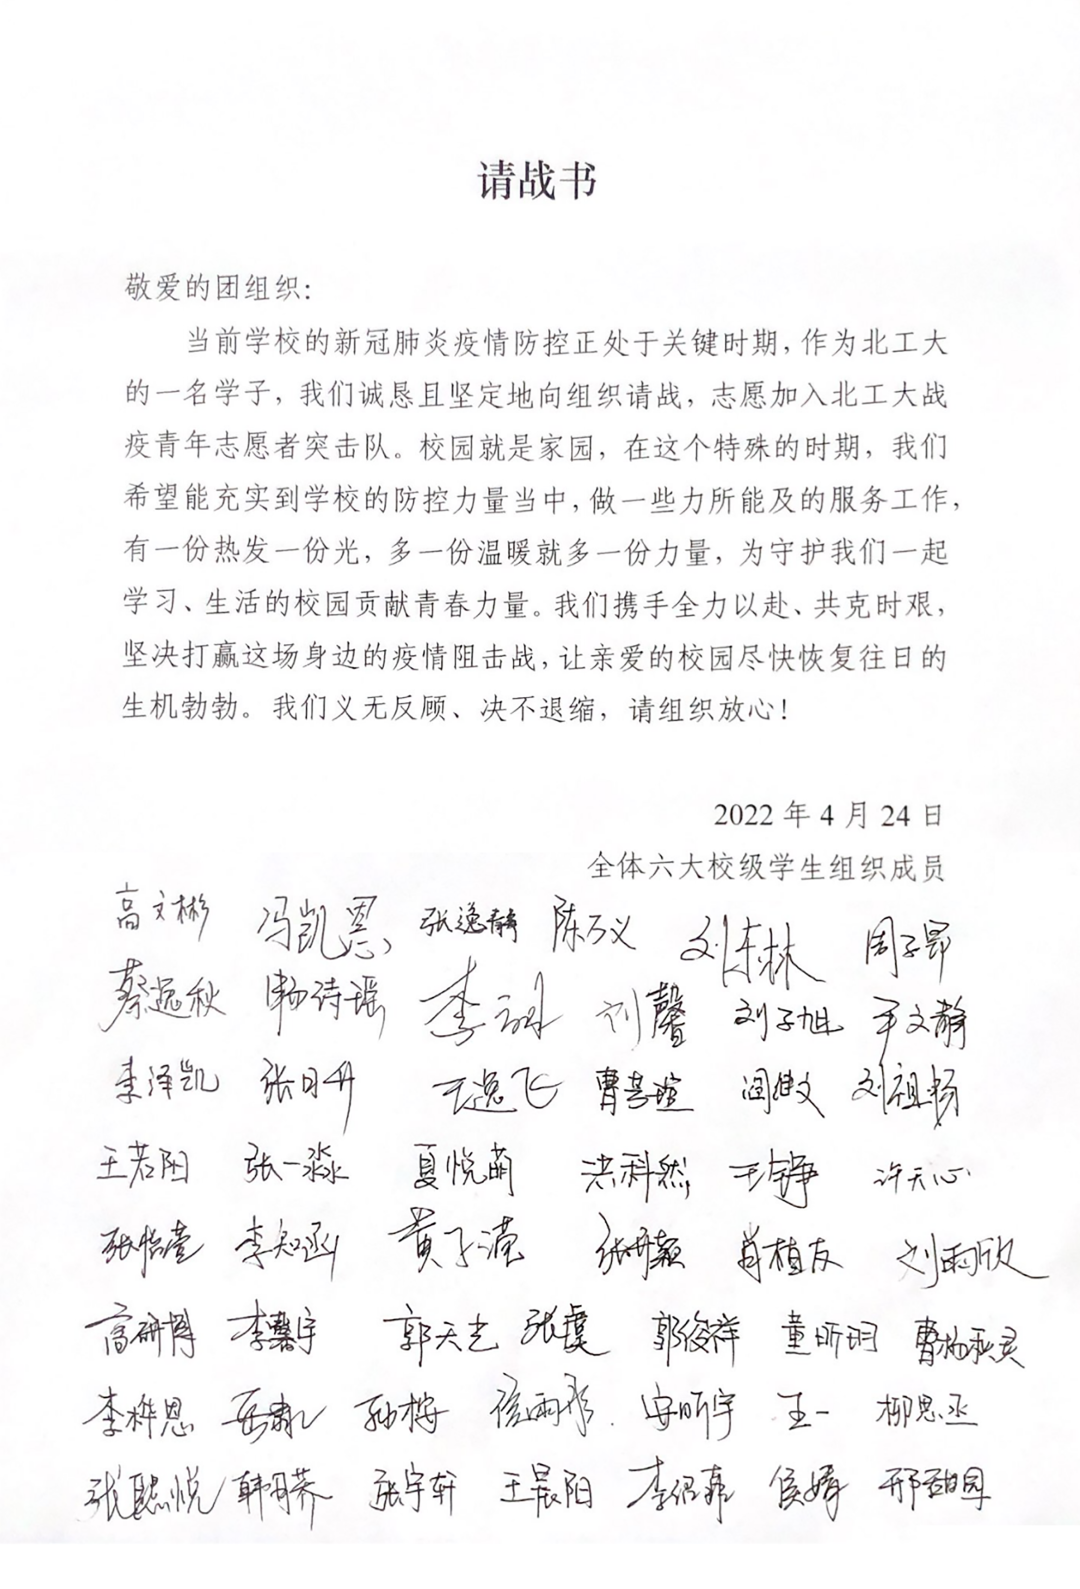 请战书
敬爱的团组织：
当前学校的新冠肺炎疫情防控正处于关键时期，作为北工大
的一名学子，我们诚恳且坚定地向组织请战，志愿加入北工大战
疫青年志愿者突击队。校园就是家园，在这个特殊的时期，我们
希望能充实到学校的防控力量当中，做一些力所能及的服务工作，
有一份热发一份光，多一份温暖就多一份力量，为守护我们一起
学习、生活的校园贡献青春力量。我们携手全力以赴、共克时艰，
坚决打赢这场身边的疫情阻击战，让亲爱的校园尽快恢复往日的
生机勃勃。我们义无反顾、决不退缩，请组织放心！
2022 年 4 月 24 日
全体六大校级学生组织成员
高文彬 冯凯恩 张逸静 陈万义 刘东林 周子昂
蔡远秋 杨诗瑶 刘馨 刘子旭 尹文静
李泽凯 张日升 王逸飞 刘祖杨
王若阳 张一淼 夏悦萌 洪科然 王铮 许天心
张怡萱 李知函 黄子滢 肖植友 刘雨欣
高研博 郭天龙 张虞 郭俊祥 童昕玥
李桦恩 孙梅 侯雨彤 安昕宇 王一 柳思丞
张聪悦 韩明荞 张宇轩 王晨阳 侯婧 邢甜园